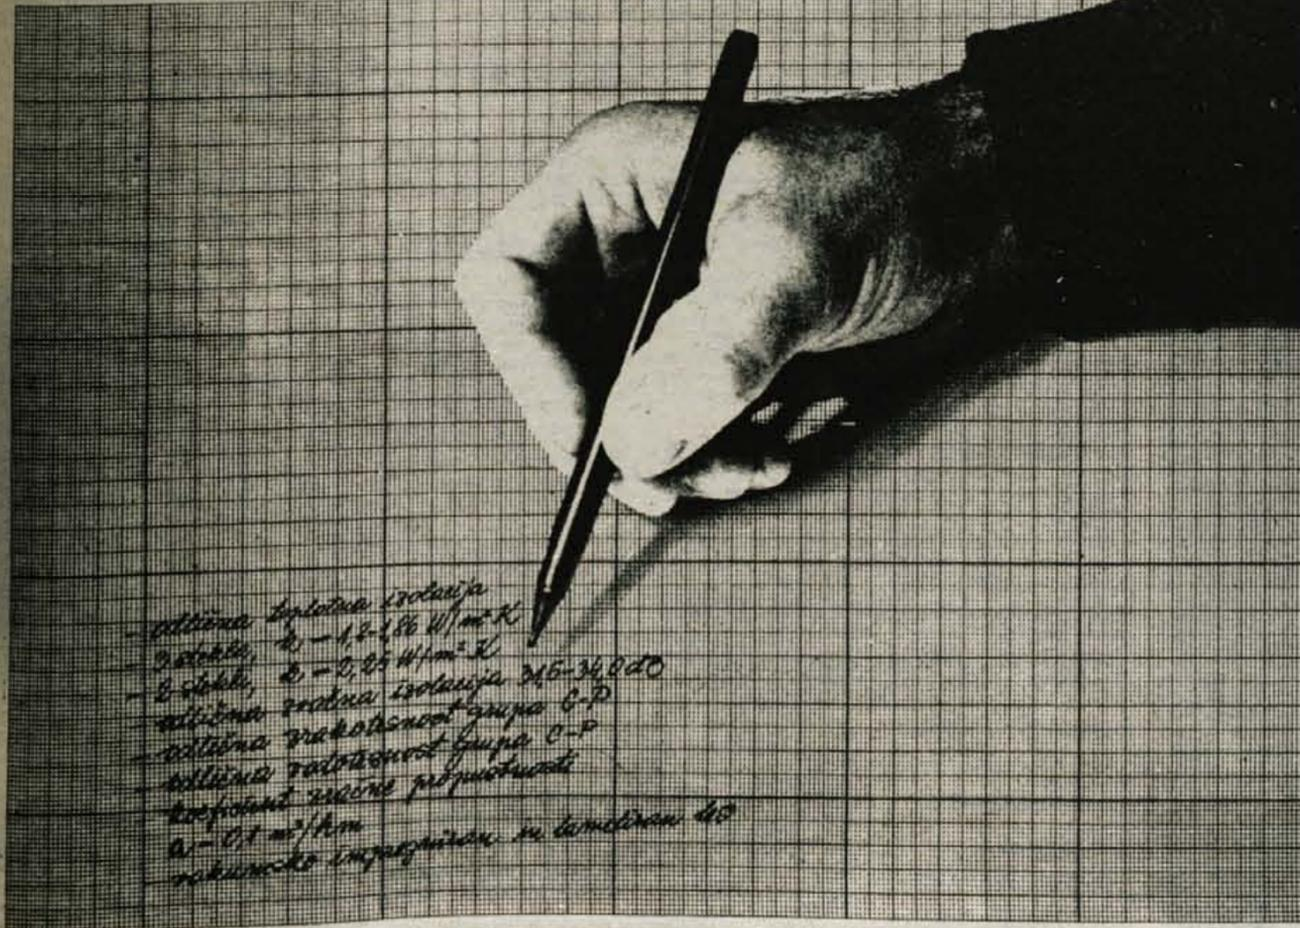 - odlična toplotna izolacija
- 3 stekla, k - 1,8-1,86 W/m² K
- 2 stekli, k - 2,25 W/m² K
- odlična zvočna izolacija 31,5-34,0 dB
- odlična zrakotesnost grupa C-P
- odlična vodotesnost grupa C-P
- koeficient zračne propustnosti
a - 0,1 m³/hm
- vakumsko impregniran in lameliran